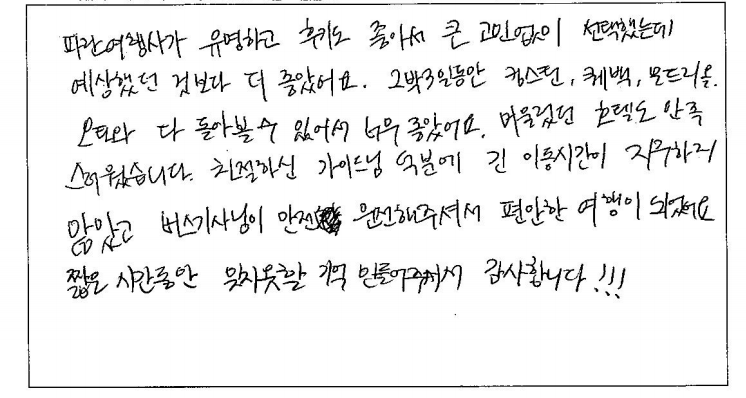 파란여행사가 유명하고 후기도 좋아서 큰 고민없이 선택했는데
예상했던 것보다 더 좋았어요. 2박3일동안 킹스턴, 퀘백, 몬트리올.
오타와 다 돌아볼 수 있어서 너무 좋았어요. 머물렀던 호텔도 만족
스러웠습니다. 친절하신 가이드님 덕분에 긴 이동시간이 지루하지
않았고 버스기사님이 안전 운전해주셔서 편안한 여행이 되었어요
짧은 시간동안 잊지못할 기억 만들어주셔서 감사합니다!!!